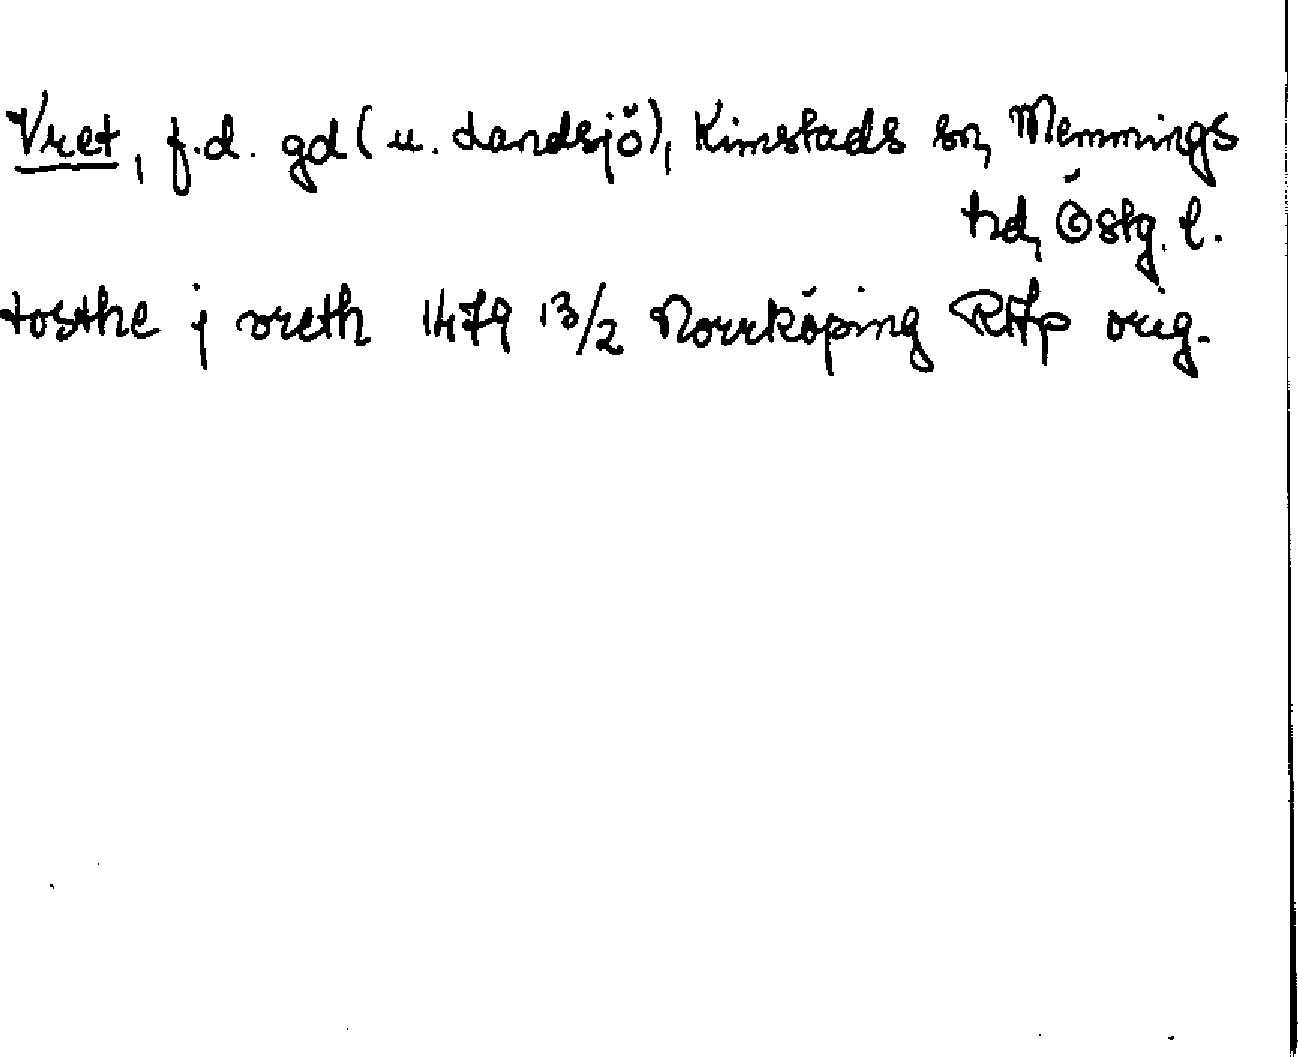 Vret, f.d. gd (u. Landsjö), Kimstads sn, Memmings
hd, Östg. l.
tosthe j vreth 1479 13/2 Norrköping RAp orig.